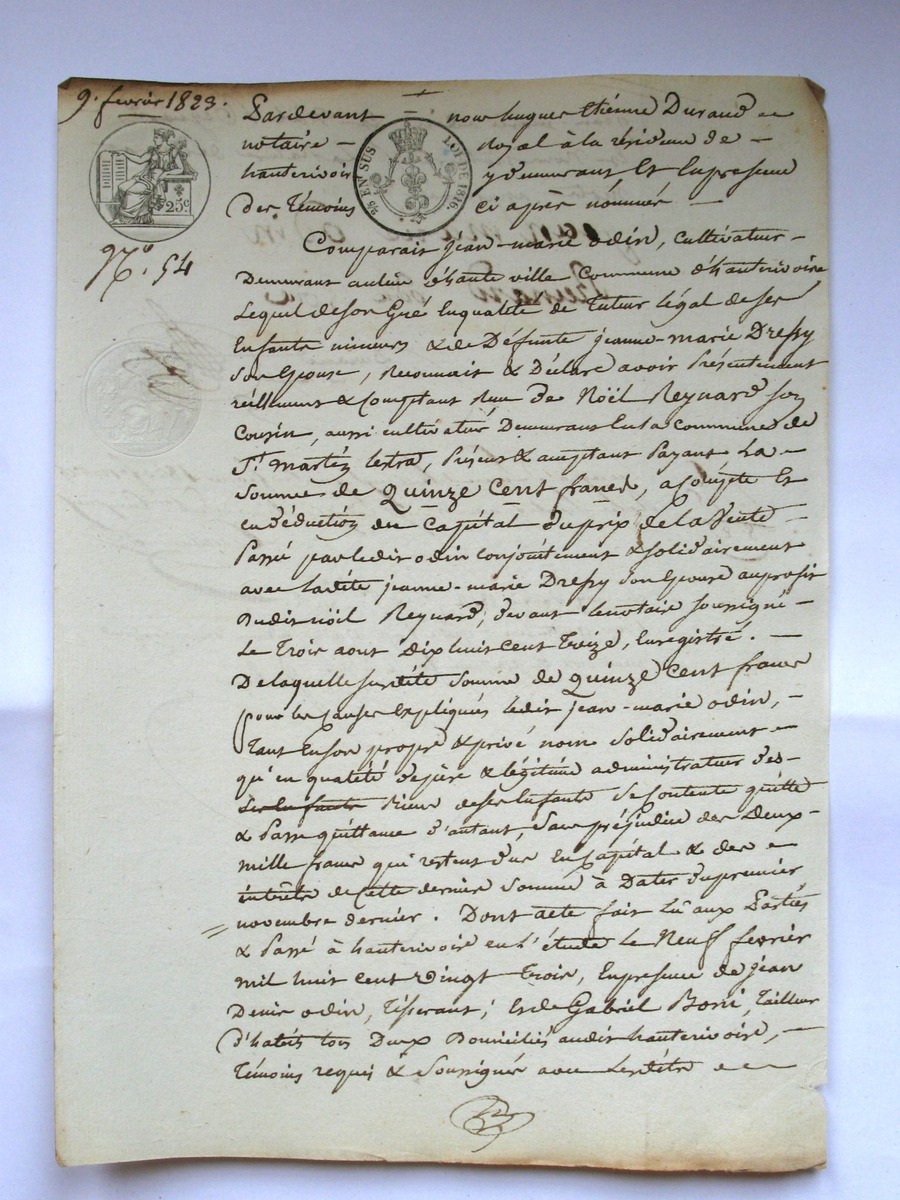 9. fevrier 1823.
25 EN SUS
LOI DE 1816.
25c
N.° 54
Pardevant nous hugues Etiénne Durand
notaire royal à la résidence de
hauterivoire y demeurant Et Enpresence
Des Témoins ci après nommés
Comparait jean-marie odin, cultivateur
Demeurant aulieu d'haute ville Commune d'hauterivoire
Lequel de son Gré Enqualité de Tuteur légal de ses
Enfants mineurs & de Défunte jeanne-marie Dressy
Son Epouse, Reconnait & Déclare avoir Présentement
réellement & Comptant Reçu de Nöèl Reynard son
Cousin, aussi cultivateur Demeurant En la commune de
St. martin lestra, Présent & acceptant Payant La
Somme de Quinze Cent francs, acompte Et
en déduction du Capital duprix de la Vente
Passé par ledit odin Conjointement & solidairement
avec ladite jeanne-marie Dressy son Epouse auprofit
Dudit nöél Reynard, devant lenotaire soussigné
Le Trois aout Dix huit Cent Treize, Enregistré.
De laquelle susdite Somme de Quinze Cent francs
pour les causes Expliquées ledit jean-marie odin,
Tant Enson propre & privé nom solidairement
qu'en qualité depère & légitime administrateur des
ses Enfants deses Enfants Se Contente quitte
& Passe quittance d'autant, Sans préjudice des Deux
mille francs qui restent dus En Capital & des
intérêts de Cette dernière Somme à Dater dupremier
novembre dernier. Dont acte fait lû aux Parties
& Passé à hauterivoire en l'étude le Neuf fevrier
mil huit cent vingt Trois, Enpresence de jean
Denis odin, Tisserant; & de Gabriel Tailleur
d'habits tous Deux Domiciliés audit hauterivoire,
Témoins requis & Soussignés avec